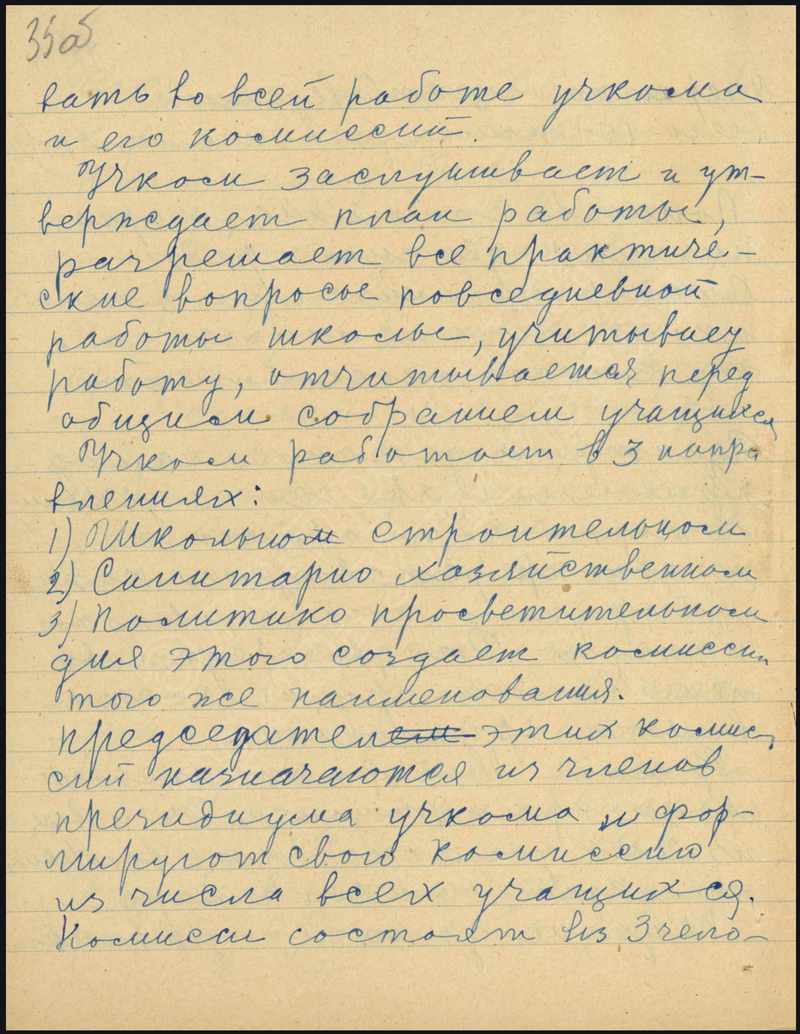 35об
вать во всей работе учкома
и его комиссий.
Учком заслушивает и ут-
верждает план работы,
разрешает все практиче-
ские вопросы повседневной
работы школы, учитывает
работу, отчитывается перед
общим собранием учащихся
Учком работает в 3 напра
влениях:
1) Школьном строительном
2) Санитарно хозяйственном
3) Политико просветительном
для этого создает комиссии
того же наименования.
председателем этих комис
сий назначаются из членов
президиума учкома и фор-
мируют свою комиссию
из числа всех учащихся.
Комиссии состоят из 3 чело-